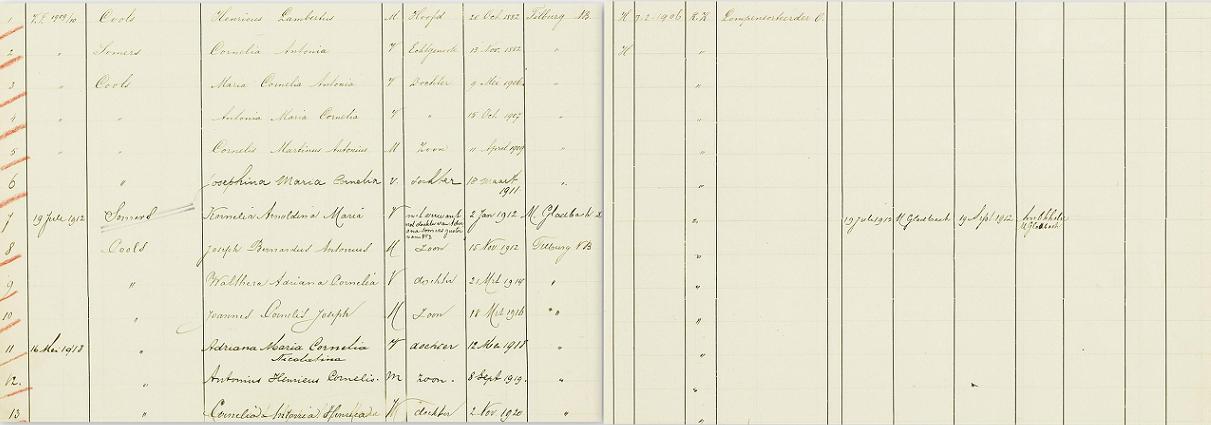 1 1909/10 Cools Henricus Lambertus M Hoofd 20 Oct. 1882 Tilburg NB. H 7-2-1906 R.K. Lompensorteerder O.
2 " Somers Cornelia Antonia V Echtgenoote 13 Nov. 1882 " H "
3 " Cools Maria Cornelia Antonia V Dochter 9 Mei 1906 " "
4 " " Antonia Maria Cornelia V " 15 Oct. 1907 " "
5 " " Cornelis Martinus Antonius M Zoon 11 April 1909 " "
6 " Josephina Maria Cornelia v. dochter 13 maart 1911 " "
7 19 Juli 1912 Somers Kornelia Arnoldina Maria V niet verwant 2 Jan 1912 M. Gladbach " 19 Juli 1912 M. Gladbach 19 Sept 1912 M Gladbach
8 Cools Joseph Bernardus Antonius M Zoon 15 Nov 1912 Tilburg NB "
9 " Walthera Adriana Cornelia V dochter 21 Mrt 1914 " "
10 " Joannes Cornelis Joseph M Zoon 18 Mrt 1916 " "
11 16 Mei 1918 " Adriana Maria Cornelia V dochter 12 Mei 1918 " "
Nicolatina
12. " Antonius Henricus Cornelis. M Zoon. 8 Sept 1919. " "
13 " Cornelia Antonia Henrica V dochter 2 Nov 1920 " "